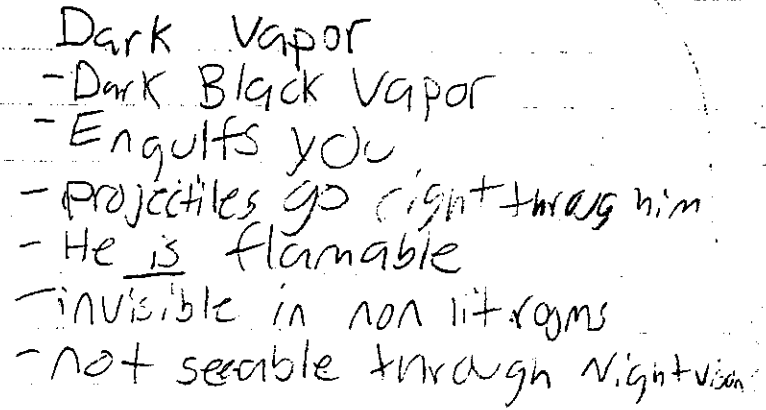 Dark Vapor
-Dark Black Vapor
-Engulfs you
- projectiles go right throug him
- He is flamable
-invisible in non lit rooms
-not seeable through Nightvison